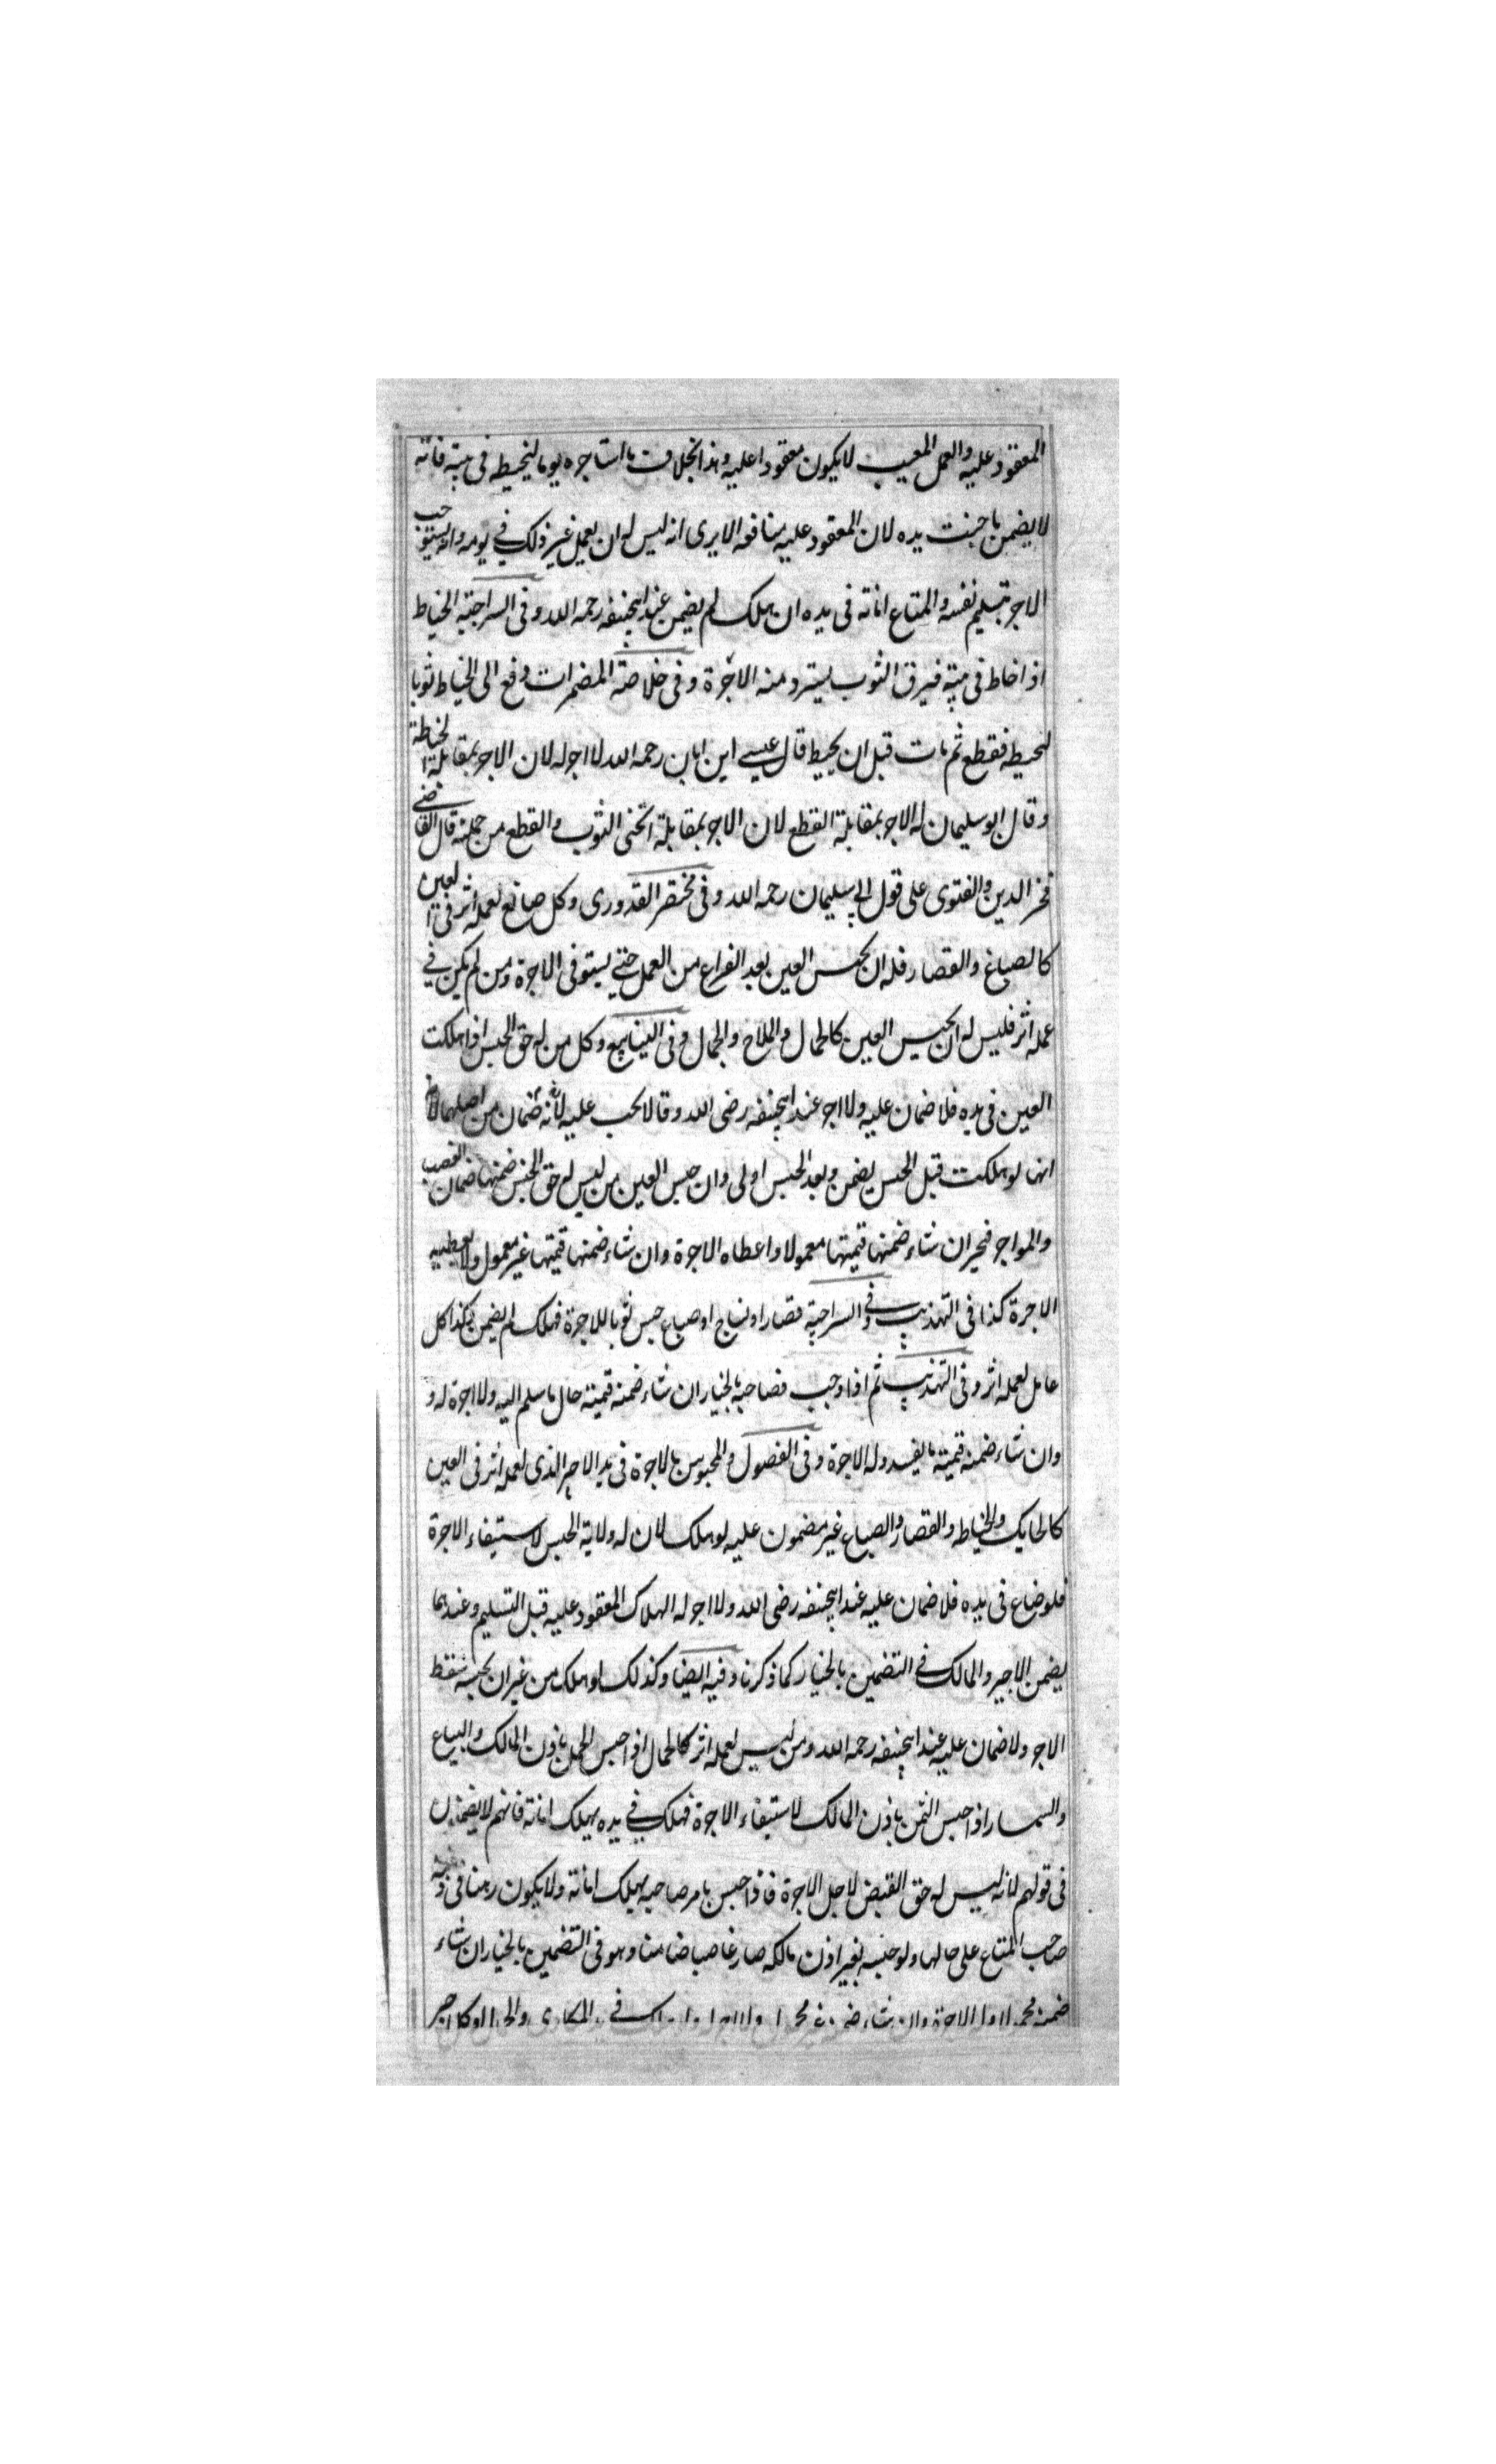 المعقود عليه والعمل المعيب لا يكون معقودا عليه وهذا بخلاف ما استاجره يوما ليخيطه فى بيته فانه
لا يضمن ما جنت يده لان المعقود عليه منافعه الا يرى انه ليس له ان يعمل غير ذلك في يومه وانه يستوجب
الاجر بتسليم نفسه والمتاع امانة فى يده ان هلك لم يضمن عند ابيحنيفه رحمه الله وفى السراجية الخياط
اذا خاط فى بيته فسرق الثوب يسترد منه الاجرة وفى خلاصة المضمرات دفع الى الخياط ثوبا
لتخيطه فقطع ثم مات قبل ان يخيط قال عيسى ابن ابان رحمه الله لا اجر له لان الاجر بمقابلة الخياطة
وقال ابو سليمان له الاجر بمقابلة القطع لان الاجر بمقابلة الثوب والقطع من جملته قال القاضي
فخر الدين والفتوى على قول ابي سليمان رحمه الله وفى مختصر القدورى وكل صانع لعمله اثر فى العين
كالصباغ والقصار فله ان يحبس العين بعد الفراغ من العمل حتى يستوفى الاجرة ومن لم يكن في
عمله اثر فليس له ان يحبس العين كالحمال والملاح والجمال وفى الينابيع وكل من له حق الحبس اذا هلكت
العين فى يده فلا ضمان عليه ولا اجر عند ابيحنيفه رضى الله وقالا يجب عليه لانه ضمان من اصلهما
انها لو هلكت قبل الحبس يضمن وبعد الحبس اولى وان حبس العين من ليس له حق الحبس ضمنها ضمان الغصب
والمواجر مخير ان شاء ضمنها قيمتها معمولا واعطاه الاجرة وان شاء ضمنها قيمتها غير معمول ولا يعطيه
الاجرة كذا فى التهذيب وفي السراجية قصار او نساج او صباغ حبس ثوبا للاجرة فهلك لم يضمن وكذا كل
عامل لعمله اثر وفى التهذيب ثم اذا وجب فصاحبه بالخيار ان شاء ضمنه قيمته حال ما سلم اليه ولا اجرة له و
وان شاء ضمنه قيمته وله الاجرة وفى الفصول والمحبوس بالاجرة فى يد الاجير الذى لعمله اثر فى العين
كالحايك والخياطه والقصار والصباغ غير مضمون عليه لو هلك لان له ولاية الحبس لاستيفاء الاجرة
فلو ضاع فى يده فلا ضمان عليه عند ابيحنيفه رضى الله ولا اجر له لهلاك المعقود عليه قبل التسليم وعندهما
يضمن الاجير والمالك في التضمين بالخيار كما ذكرنا وفيه ايضا وكذلك لو هلك من غير ان يحبسه سقط
الاجر ولا ضمان عليه عند ابيحنيفه رحمه الله ومن ليس لعمله اثر كالحمال اذا حبس الحمل باذن المالك والبياع
والسمسار اذا حبس الثمن باذن المالك لاستيفاء الاجرة فهلك في يده يهلك امانة فانهم لا يضمنون
فى قولهم لانه ليس له حق القبض لاجل الاجرة فاذا حبس بامر صاحبه يهلك امانة ولا يكون رهنا فى ذمة
صاحب المتاع على حالها ولو حبسه بغير اذن مالكه صار غاصبا ضامنا وهو فى التضمين بالخيار ان شاء
ضمنه الاجرة وان شاء